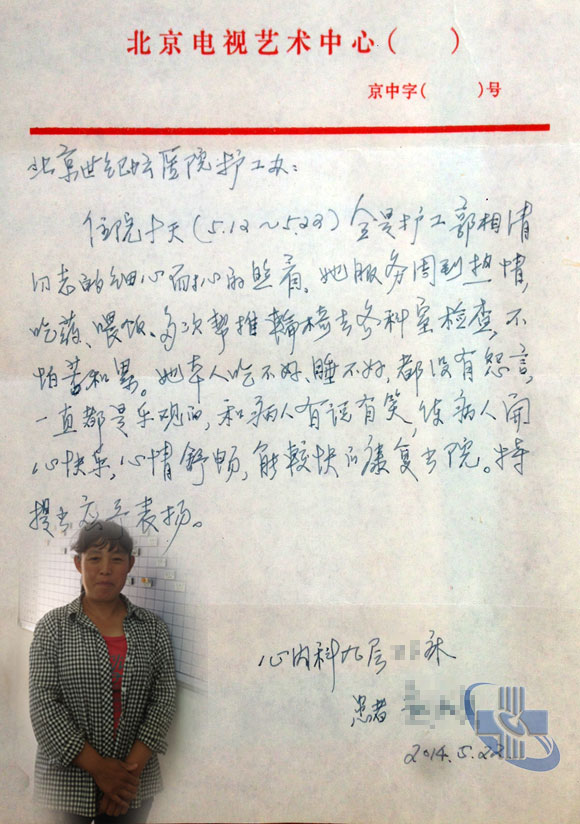 北京电视艺术中心(　　)
京中字(　　)号
北京世纪坛医院护工办：
住院十天(5.12～5.22)全是护工部相清
同志的细心而耐心的照看。她服务周到热情，
吃药、喂饭、多次帮推輪椅去各科室检查，不
怕苦和累。她本人吃不好、睡不好，都没有怨言，
一直都是乐观的，和病人有说有笑，使病人开
心快乐，心情舒畅，能较快的康复出院。特
提出应予表扬。
心内科九层 床
患者
2014.5.22